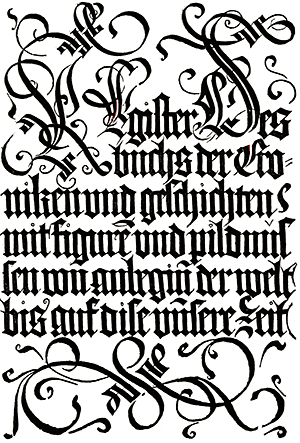 Register Des
buchs der Cro-
niken und geschichten
mit figurē und pildnus
sen von anbegiñ der welt
bis auf dise unsere Zeit